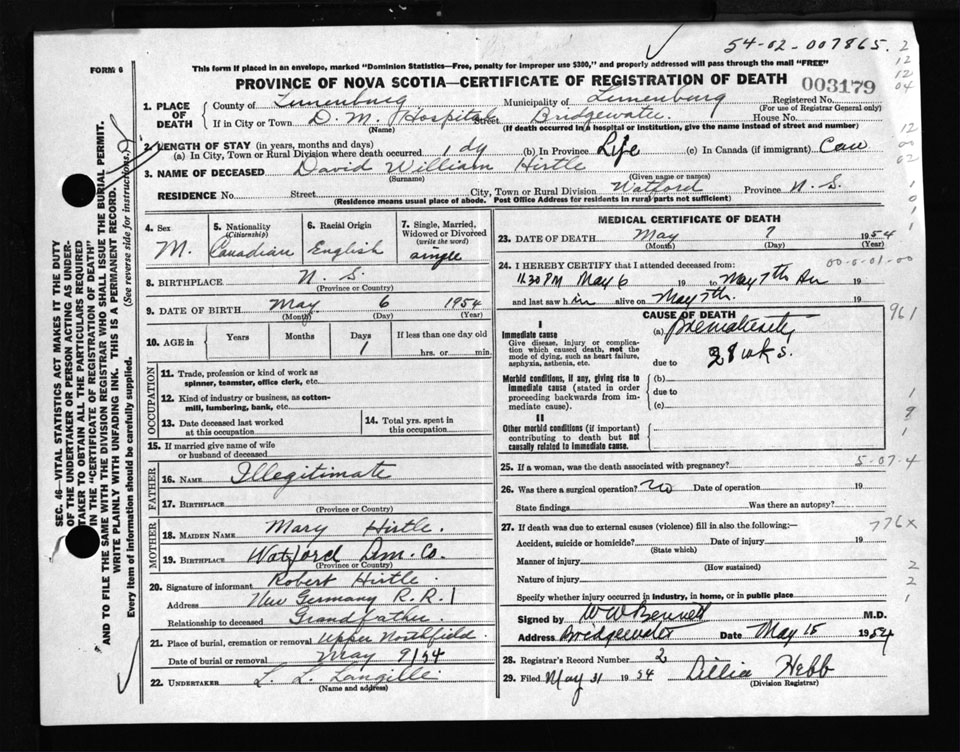 54-02-007865.
2
12
12
04
FORM 6
This form if placed in an envelope, marked "Dominion Statistics—Free, penalty for improper use $300," and properly addressed will pass through the mail "FREE"
PROVINCE OF NOVA SCOTIA—CERTIFICATE OF REGISTRATION OF DEATH
003179
1. PLACE OF DEATH County of Lunenburg Municipality of Lunenburg Registered No. (For use of Registrar General only)
If in City or Town D. M. Hospital Street Bridgewater House No.
(Name) (If death occurred in a hospital or institution, give the name instead of street and number)
2. LENGTH OF STAY (in years, months and days)
(a) In City, Town or Rural Division where death occurred 1 dy (b) In Province Life (c) In Canada (if immigrant) Can
3. NAME OF DECEASED David William Hirtle
(Surname) (Given name or names)
RESIDENCE No. Street City, Town or Rural Division Watford Province N. S.
(Residence means usual place of abode. Post Office Address for residents in rural parts not sufficient)
4. Sex M.
5. Nationality (Citizenship) Canadian
6. Racial Origin English
7. Single, Married, Widowed or Divorced (write the word) single
8. BIRTHPLACE N. S.
(Province or Country)
9. DATE OF BIRTH May 6 1954
(Month) (Day) (Year)
10. AGE in Years Months Days 1 If less than one day old hrs. or min.
OCCUPATION
11. Trade, profession or kind of work as spinner, teamster, office clerk, etc.
12. Kind of industry or business, as cotton-mill, lumbering, bank, etc.
13. Date deceased last worked at this occupation
14. Total yrs. spent in this occupation
15. If married give name of wife or husband of deceased
FATHER
16. NAME Illegitimate
17. BIRTHPLACE
(Province or Country)
MOTHER
18. MAIDEN NAME Mary Hirtle.
19. BIRTHPLACE Watford Lun. Co.
(Province or Country)
20. Signature of informant Robert Hirtle.
Address New Germany R.R. 1
Relationship to deceased Grandfather.
21. Place of burial, cremation or removal Upper Northfield.
Date of burial or removal May 9/54
22. UNDERTAKER L. L. Langille.
(Name and address)
MEDICAL CERTIFICATE OF DEATH
23. DATE OF DEATH May 7 1954
(Month) (Day) (Year)
24. I HEREBY CERTIFY that I attended deceased from: 00-0-01-00
11.30 PM May 6 19 to May 7th 19
and last saw h im alive on May 7th. 19
CAUSE OF DEATH
961
I
Immediate cause
Give disease, injury or complication which caused death, not the mode of dying, such as heart failure, asphyxia, asthenia, etc.
(a) Prematurity
due to 28 wks.
Morbid conditions, if any, giving rise to immediate cause (stated in order proceeding backwards from immediate cause).
(b)
due to
(c)
II
Other morbid conditions (if important) contributing to death but not causally related to immediate cause.
25. If a woman, was the death associated with pregnancy? 5-07-4
26. Was there a surgical operation? No Date of operation 19
State findings Was there an autopsy?
27. If death was due to external causes (violence) fill in also the following: 776x
Accident, suicide or homicide? Date of injury 19
(State which)
Manner of injury
(How sustained)
Nature of injury
Specify whether injury occurred in industry, in home, or in public place
Signed by W W Bennett M.D.
Address Bridgewater Date May 15 1954
28. Registrar's Record Number 2
29. Filed May 31 1954 Lillia Hebb
(Division Registrar)
SEC. 46—VITAL STATISTICS ACT MAKES IT THE DUTY
OF THE UNDERTAKER OR PERSON ACTING AS UNDER-
TAKER TO OBTAIN ALL THE PARTICULARS REQUIRED
IN THE "CERTIFICATE OF REGISTRATION OF DEATH"
AND TO FILE THE SAME WITH THE DIVISION REGISTRAR WHO SHALL ISSUE THE BURIAL PERMIT.
WRITE PLAINLY WITH UNFADING INK. THIS IS A PERMANENT RECORD.
Every item of information should be carefully supplied. (See reverse side for instructions.)